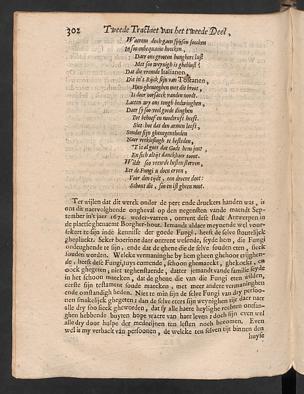 302 Tweede Tractaet van het tweede Deel,
Waerom doch gaen spijsen soecken
In soo onbequaeme hoecken,
Daer ons groeten honghers lust
Met soo weynigh is ghesust?
Dat die vremde Italianen,
Die in't Rijck sijn van Toskanen,
Hun gheneeghen met die broot,
Is door oorsaeck vanden noodt.
Laeten wy ons tongh bedwinghen,
Daer sy soo veel goede dinghen
Tot behoef en nootdruft heeft.
Siet hoe dat den armen leeft,
Sonder sijn gheneghentheden
Naer verkiesingh te besteden,
'T is al goet dat Godt hem jont
En sich altijt danckbaer toont.
Wildt soo vreemde besten sterven,
Eet de Fungi
Voor den eijdt, een droeve doot:
Schout die, soo en ist gheen noot.
Ter wijlen dat dit werck onder de pers ende druckers handen was, is
ons dit naervolghende ongheval op den neghensten vande maendt Sep-
tember in't jaer 1674. weder-varen, ontrent dese stadt Antwerpen in
de plaetse ghenaemt Borgher-hout. Iemandt aldaer meynende wel voor-
sekert te sijn inde kennisse der goede Fungi, heeft de selve sluerdelijck
ghepluckt. Seker boerinne daer ontrent wesende, seyde hem, die Fungi
ondeughende te sijn, ende dat de ghene die de selve souden eten, sieck
souden worden. Welcke vermaninghe by hem gheen ghehoor crijghen-
de, heeft dese Fungi, t'huys comende, schoon ghemaeckt, ghekockt, en
oock ghegeten, niet teghenstaende, datter jemandt vande familie seyde
in het schoon maecken, dat de ghene die van die Fungi eten wilden,
eerst sijn testament soude maecken, met meer andere vermaninghen
ende omstandigh heden. Niet te min sijn de selve Fungi van dry persoo-
nen smakelijck ghegeten: dan de selve eters sijn weynighen tijt daer naer
alle dry soo sieck gheworden, dat sy alle haere heylighe rechten ontfan-
ghen hebbende buyten hope waren van haer leven: doch sijn even wel
alle dry door hulpe der medecijnen ten lesten noch becomen. Even
wel is my verhaelt van persoonen, de welcke ten selven tijt binnen den
huyse